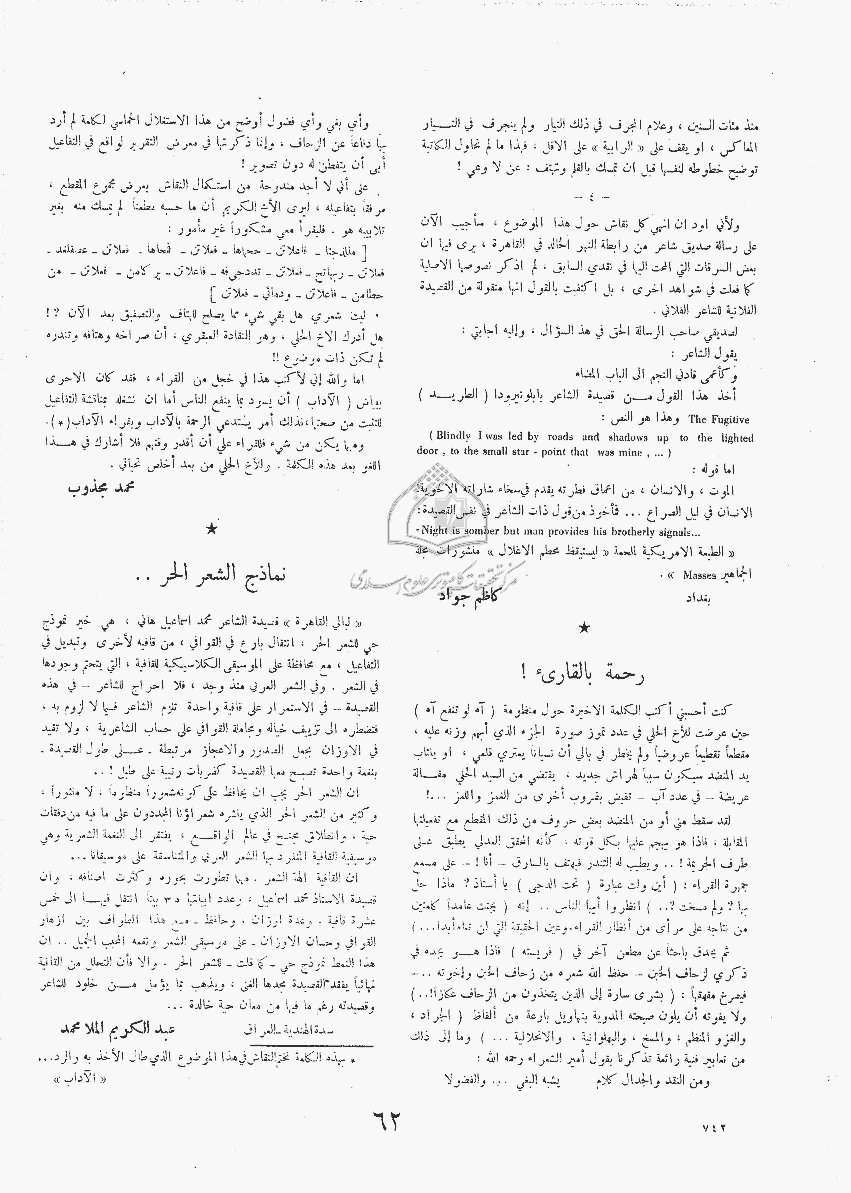 منذ مئات السنين ، وعلام انجرف في ذلك التيار ولم ينجرف في التـــيار
المعاكس ، او يقف على « الرابية » على الاقل ، فهذا ما لم تحاول الكاتبة
توضيح خطوطه لنفسها قبل ان تمسك بالقلم وتهتف : عن لا وعي !
– ٤ –
ولأني اود ان انهي كل نقاش حول هذا الموضوع ، سأجيب الآن
على رسالة صديق شاعر من رابطة النهر الخالد في القاهرة ، يرى فيها ان
بعض السرقات التي ألمحت اليها في نقدي السابق ، لم اذكر نصوصها الاصلية
كما فعلت في شواهد اخرى ، بل اكتفيت بالقول انها منقولة من القصيدة
الفلانية للشاعر الفلاني .
لصديقي صاحب الرسالة الحق في هذا السؤال ، وإليه اجابتي :
يقول الشاعر :
وكأعمى قادني النجم الى الباب المضاء
أخذ هذا القول مـــن قصيدة الشاعر بابلو نيرودا ( الطريـــد )
The Fugitive وهذا هو النص :
( Blindly I was led by roads and shadows up to the lighted
door , to the small star - point that was mine , ... )
اما قوله :
الموت ، والانسان ، من اعماق فطرته يقدم في سخاء شاراته الاخوية!
الانسان في ليل الصراع ... فمأخوذ من قول ذات الشاعر في نفس القصيدة:
-Night is somber but man provides his brotherly signals...
« الطبعة الامريكية للمحمة « ليستيقظ محطم الاغلال » منشورات مجلة
الجماهير Masses » .
بغداد كاظم جواد
★
رحمة بالقارىء !
كنت أحسبني أكتب الكلمة الاخيرة حول منظومة ( آه لو تنفع آه )
حين عرضت للأخ الحلي في عدد تموز صورة الجزء الذي أبهم وزنه عليه ،
مقطعاً تقطيعاً عروضياً ولم يخطر في بالي أن نسياناً يعتري قلمي ، او ينتاب
يد المنضد سيكون سبباً لهراش جديد ، يقتضي من السيد الحلي مقـــالة
عريضة – في عدد آب – تفيض بضروب أخرى من الغمز واللمز ...!
لقد سقط مني أو من المنضد بعض حروف من ذلك المقطع مع تفعيلتها
المقابلة ، فاذا هو يهجم عليها بكل قوته ، كأنه المحقق العدلي يطبق عـلى
طرف الجريمة ! .. ويطيب له التندر فيهتف بالسارق – أنا ! – على مسمع
جمهرة القراء : ( أين ولت عبارة ( تحت الدجى ) يا أستاذ? ماذا حل
بها? ولم مسخت?.. ) انظروا أيها الناس .. إنه ( يجتث عامداً كلمتين
من نتاجه على مرأى من أنظار القراء ، وعين الحقيقة التي لن تنام أبدا...)
ثم يحدق باحثاً عن مطعن آخر في ( فريسته ) فاذا هـــو يجده في
ذكري لزحاف الخبن – حفظ الله شعره من زحاف الخبن وإخوته ..–
فيصرخ مقهقهاً : ( بشرى سارة إلى الذين يتخذون من الزحاف عكازاً!..)
ولا يفوته أن يلون صيحته المدوية بتهاويل بارعة من ألفاظ ( الجراد ،
والغزو المنظم ، والمسخ ، والبهلوانية ، والانحلالية ... ) وما إلى ذلك
من تعابير فنية رائعة تذكرنا بقول أمير الشعراء رحمه الله :
ومن النقد والجدال كلام يشبه البغي ... والفضولا
وأي بغي وأي فضول أوضح من هذا الاستغلال الحماسي لكلمة لم أرد
بها دفاعاً عن الزحاف ، وإنما ذكرتها في معرض التقرير لواقع في التفاعيل
أبى أن يتفطن له دون تصوير !
على أني لا أجد مندوحة من استكمال النقاش بعرض مجموع المقطع ،
مرفقاً بتفاعيله ، ليرى الأخ الكريم أن ما حسبه مطعناً لم يمسك منه بغير
تلابيبه هو . فليقرأ معي مشكوراً غير مأمور :
ليت شعري هل بقي شيء مما يصلح للهتاف والتصفيق بعد الآن ?!
هل أدرك الاخ الحلي ، وهو النقادة العبقري ، أن صراخه وهتافه وتندره
لم تكن ذات موضوع !!
اما والله إني لأكتب هذا في خجل من القراء ، فقد كان الاحرى
ببياض ( الآداب ) أن يسود بما ينفع الناس أما ان نشغله بمناقشة التفاعيل
للتثبت من صحتها ، فذلك أمر يستدعي الرحمة بالآداب وبقراء الآداب(*).
ومهما يكن من شيء فللقراء علي أن أقدر وقتهم فلا أشارك في هـــذا
اللغو بعد هذه الكلمة . وللأخ الحلي من بعد أخلص تحياتي .
محمد مجذوب
★
نماذج الشعر الحر ..
« ليالي القاهرة » قصيدة الشاعر محمد اسماعيل هاني ، هي خير نموذج
حي للشعر الحر ، انتقال بارع في القوافي ، من قافية لأخرى وتبديل في
التفاعيل ، مع محافظة على الموسيقى الكلاسيكية للقافية ، التي يتحتم وجودها
في الشعر . وفي الشعر العربي منذ وجد ، فلا احراج للشاعر – في هذه
القصيدة – في الاستمرار على قافية واحدة تلزم الشاعر فيما لا لزوم به ،
فتضطره الى تزييف خياله ومجاملة القوافي على حساب الشاعرية ، ولا تقيد
في الاوزان يجعل الصدور والاعجاز مرتبطة – عـــلى طول القصيدة –
بنغمة واحدة تصبح معها القصيدة كضربات رتيبة على طبل ! ..
ان الشعر الحر يجب ان يحافظ على كونه شعوراً منظوماً ، لا منثوراً ،
وكثير من الشعر الحر الذي ينشره شعراؤنا المجددون على ما فيه من دفقات
حية ، وانطلاق مجنح في عالم الواقـــع ، يفتقر الى النغمة الشعرية وهي
موسيقية القافية المنفرد بها الشعر العربي والمتناسقة على موسيقانا ...
ان القافية آلهة الشعر . مهما تطورت بحوره وكثرت اصنافه ، وان
قصيدة الاستاذ محمد اسماعيل ، وعدد ابياتها ٣٥ بيتاً انتقل فيهـا الى خمس
عشرة قافية . وعدة اوزان ، وحافظ – مـــع هذا الطواف بين ازهار
القوافي وحسان الاوزان – على موسيقى الشعر ونغمه المحبب الجميل .. ان
هذا النمط نموذج حي – كما قلت – للشعر الحر . والا فأن التحلل من القافية
نهائياً يفقد القصيدة مجدها الفني ، ويذهب بما يؤمل مـــن خلود للشاعر
وقصيدته رغم ما فيها من معان حية خالدة ...
سدة الهندية – العراق عبد الكريم الملا محمد
* بهذه الكلمة نختم النقاش في هذا الموضوع الذي طال الأخذ به والرد...
« الآداب »
٦٢
٧٤٢
مركز تحقيقات كامپيوتري علوم اسلامي